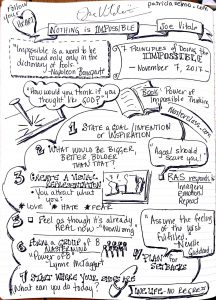 Follow
your
Heart
Joe Vitale
patricia selmo.com
NOTHING IS IMPOSSIBLE
Joe Vitale
"Impossible is a word to be
found only in the
dictionary of fools."
-Napoleon Bonaparte
7 PRINCIPLES of Doing the
IMPOSSIBLE
- November 7, 2017 -
"How would you think if you
thought like GOD?"
Book: "Power of
Impossible Thinking"
1 STATE A GOAL / INTENTION
OR INSPIRATION
2 WHAT WOULD BE BIGGER,
BETTER BOLDER
THAN THAT?
A goal should
scare you!
3 CREATE A VISUAL
REPRESENTATION
RAS responds to
Imagery
Emotion
Repeat
LOVE HATE FEAR
5 Feel as though it's already
REAL now "Nevillizing"
"Assume the feeling
of the wish
fulfilled."
Neville
Goddard
6 FORM A GROUP of 8
MASTERMIND
"Power of 8"
Lynne McTaggart
PLAN for
SETBACKS
7 START WHERE YOU
What can you do today?
LIVE LIFE - NO REGRETS